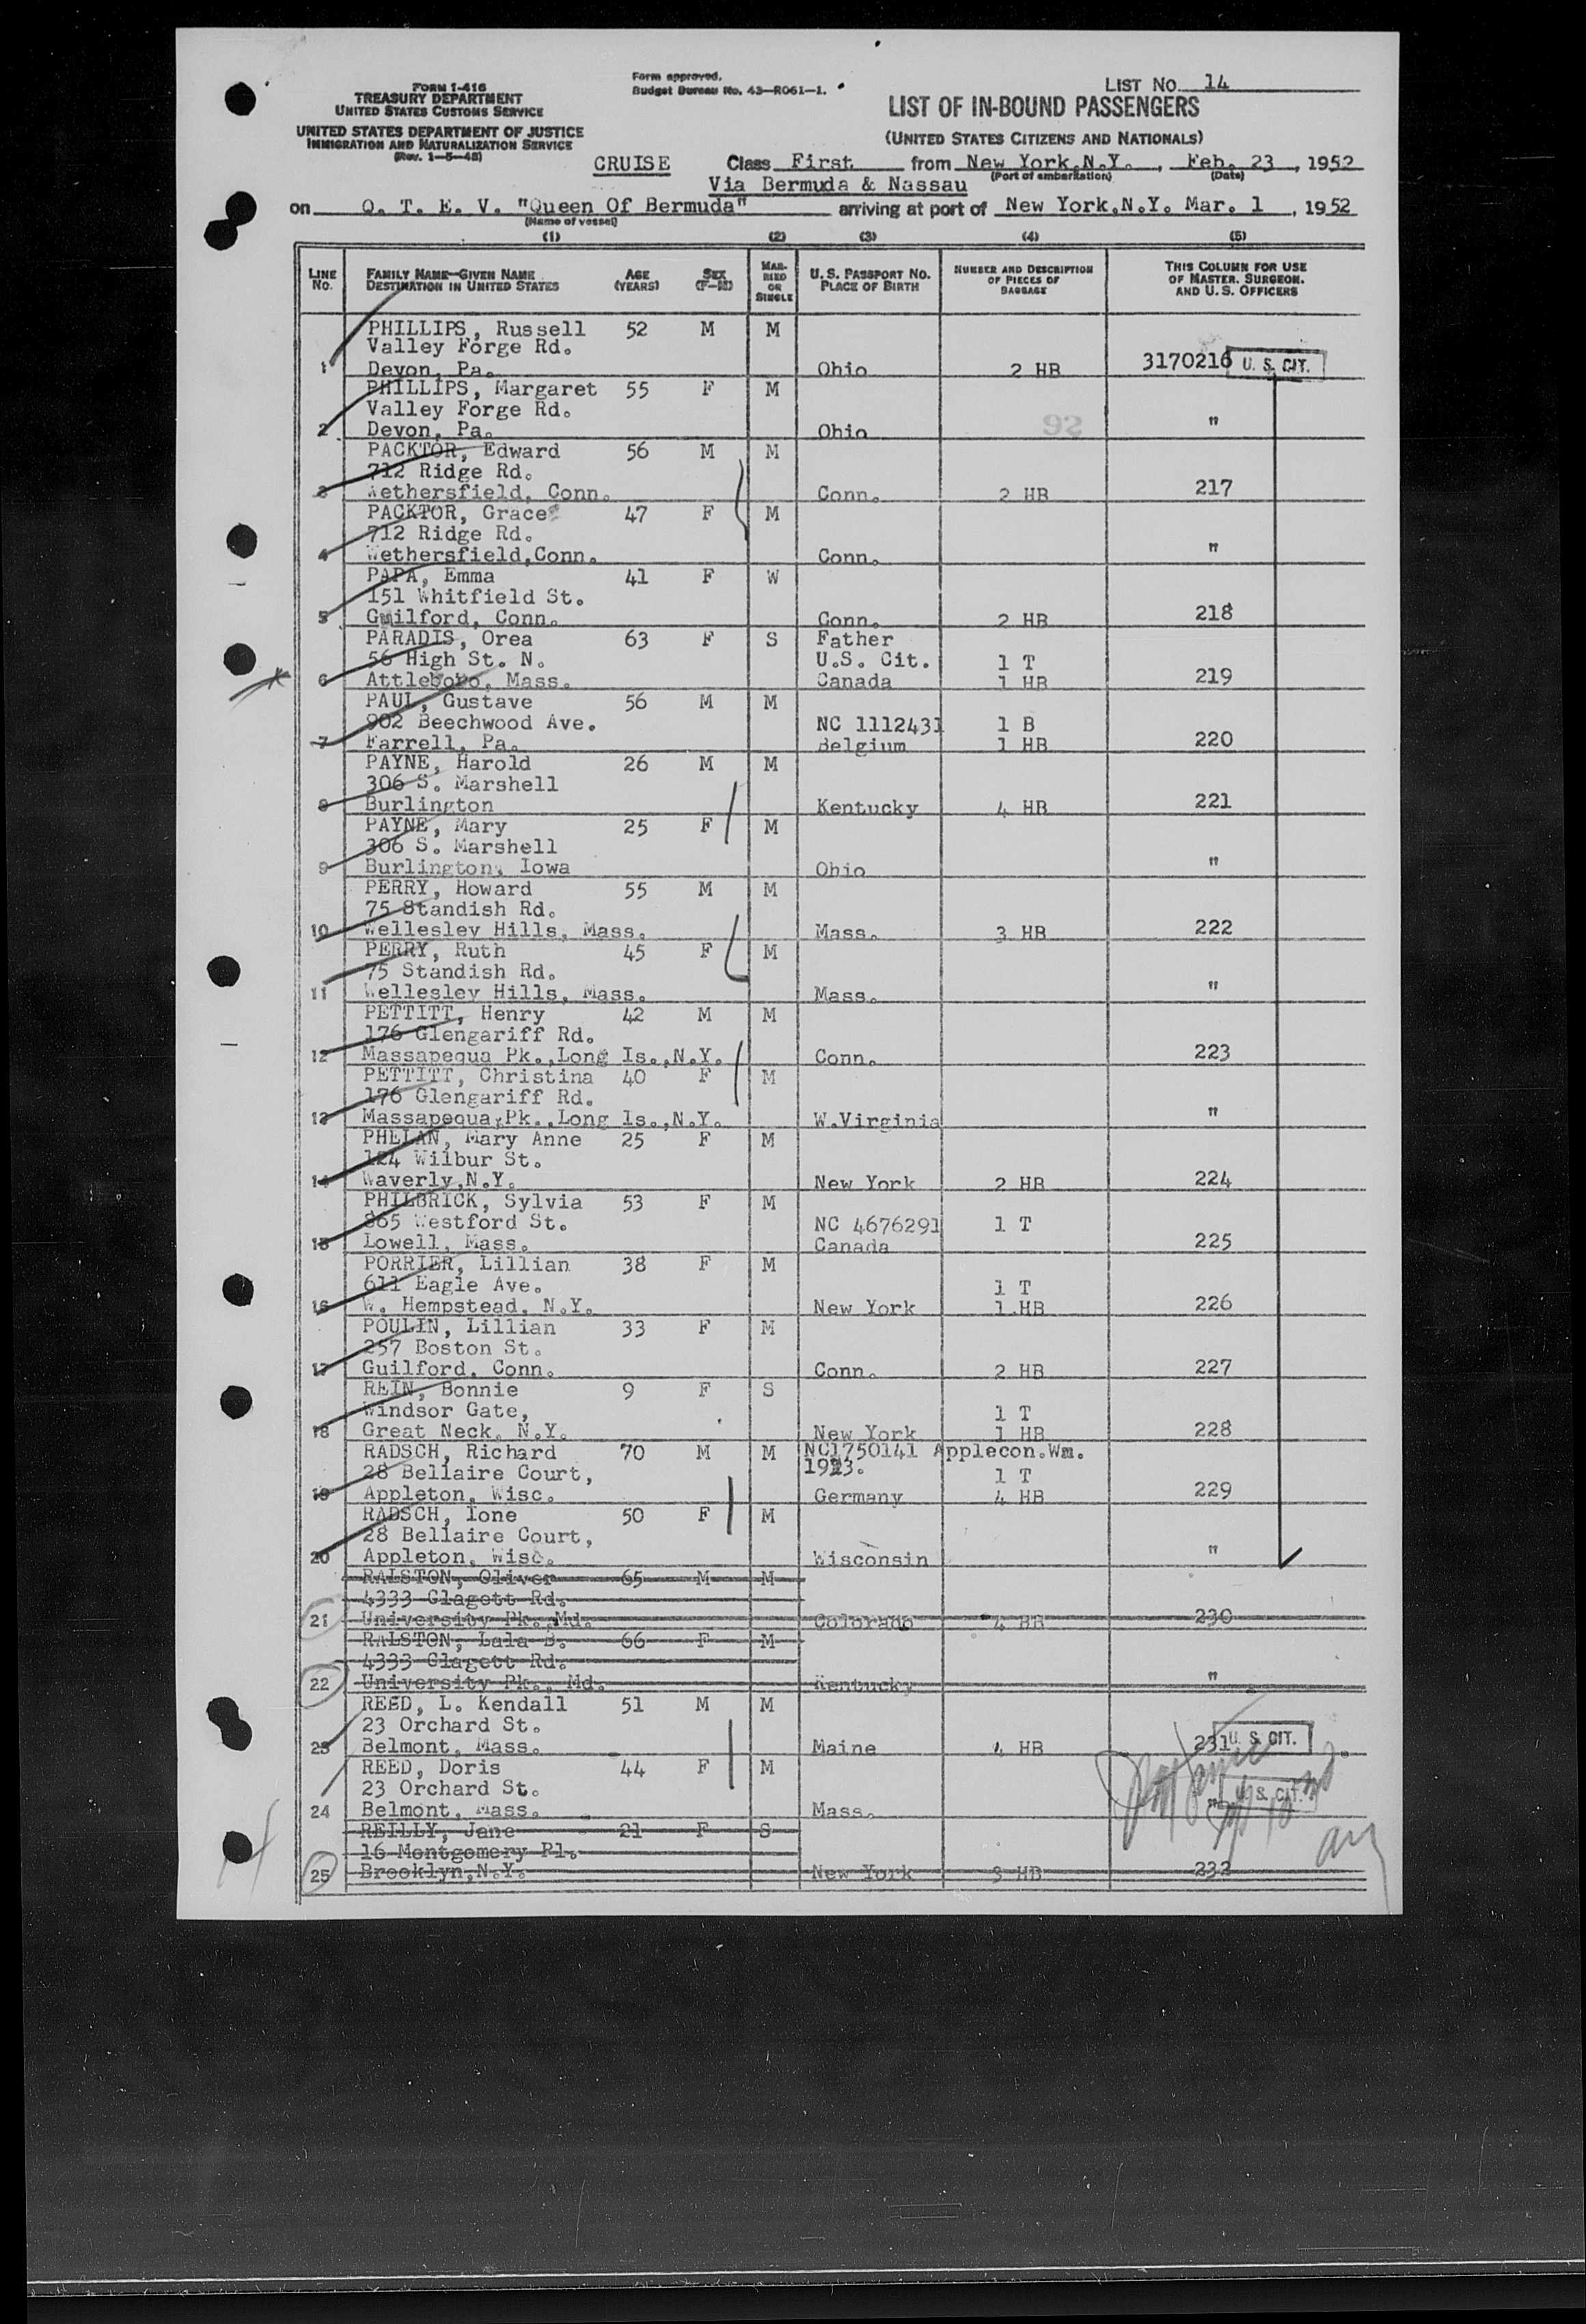 FORM I-416
TREASURY DEPARTMENT
UNITED STATES CUSTOMS SERVICE
UNITED STATES DEPARTMENT OF JUSTICE
IMMIGRATION AND NATURALIZATION SERVICE
(Rev. 1-5-48)
Form approved.
Budget Bureau No. 43-R061-1.
LIST No. 14
LIST OF IN-BOUND PASSENGERS
(UNITED STATES CITIZENS AND NATIONALS)
CRUISE Class First from New York,N.Y., Feb. 23, 1952
(Port of embarkation) (Date)
Via Bermuda & Nassau
on Q. T. E. V. "Queen Of Bermuda" arriving at port of New York,N.Y. Mar. 1, 1952
(Name of vessel)
(1) (2) (3) (4) (5)
LINE No. FAMILY NAME-GIVEN NAME DESTINATION IN UNITED STATES AGE (YEARS) SEX (F-M) MARRIED OR SINGLE U. S. PASSPORT No. PLACE OF BIRTH NUMBER AND DESCRIPTION OF PIECES OF BAGGAGE THIS COLUMN FOR USE OF MASTER, SURGEON, AND U. S. OFFICERS
PHILLIPS, Russell 52 M M
Valley Forge Rd.
1 Devon, Pa. Ohio 2 HB 3170216 U. S. CIT.
PHILLIPS, Margaret 55 F M
Valley Forge Rd.
2 Devon, Pa. Ohio "
PACKTOR, Edward 56 M M
712 Ridge Rd.
3 Wethersfield, Conn. Conn. 2 HB 217
PACKTOR, Grace 47 F M
712 Ridge Rd.
4 Wethersfield,Conn. Conn. "
PAPA, Emma 41 F W
151 Whitfield St.
5 Guilford, Conn. Conn. 2 HB 218
PARADIS, Orea 63 F S Father
56 High St. N. U.S. Cit. 1 T
6 Attleboro, Mass. Canada 1 HB 219
PAUL, Gustave 56 M M
902 Beechwood Ave. NC 1112431 1 B
7 Farrell, Pa. Belgium 1 HB 220
PAYNE, Harold 26 M M
306 S. Marshell
8 Burlington Kentucky 4 HB 221
PAYNE, Mary 25 F M
306 S. Marshell
9 Burlington, Iowa Ohio "
PERRY, Howard 55 M M
75 Standish Rd.
10 Wellesley Hills, Mass. Mass. 3 HB 222
PERRY, Ruth 45 F M
75 Standish Rd.
11 Wellesley Hills, Mass. Mass. "
PETTITT, Henry 42 M M
176 Glengariff Rd.
12 Massapequa Pk.,Long Is.,N.Y. Conn. 223
PETTITT, Christina 40 F M
176 Glengariff Rd.
13 Massapequa Pk.,Long Is.,N.Y. W.Virginia "
PHELAN, Mary Anne 25 F M
124 Wilbur St.
14 Waverly,N.Y. New York 2 HB 224
PHILBRICK, Sylvia 53 F M
865 Westford St. NC 4676291 1 T
15 Lowell, Mass. Canada 225
PORRIER, Lillian 38 F M
611 Eagle Ave. 1 T
16 W. Hempstead, N.Y. New York 1 HB 226
POULIN, Lillian 33 F M
257 Boston St.
17 Guilford, Conn. Conn. 2 HB 227
REIN, Bonnie 9 F S
Windsor Gate, 1 T
18 Great Neck, N.Y. New York 1 HB 228
RADSCH, Richard 70 M M NC1750141 Applecon.Wm.
28 Bellaire Court, 1923. 1 T
19 Appleton, Wisc. Germany 4 HB 229
RADSCH, Ione 50 F M
28 Bellaire Court,
20 Appleton, Wisc. Wisconsin "
RALSTON, Oliver 65 M M
4333 Clagett Rd.
21 University Pk. Md. Colorado 4 HB 230
RALSTON, Lala B. 66 F M
4333 Clagett Rd.
22 University Pk., Md. Kentucky "
REED, L. Kendall 51 M M
23 Orchard St.
23 Belmont, Mass. Maine 4 HB 231 U. S. CIT.
REED, Doris 44 F M
23 Orchard St. " U. S. CIT.
24 Belmont, Mass. Mass.
REILLY, Jane 21 F S
16 Montgomery Pl.
25 Brooklyn,N.Y. New York 3 HB 232